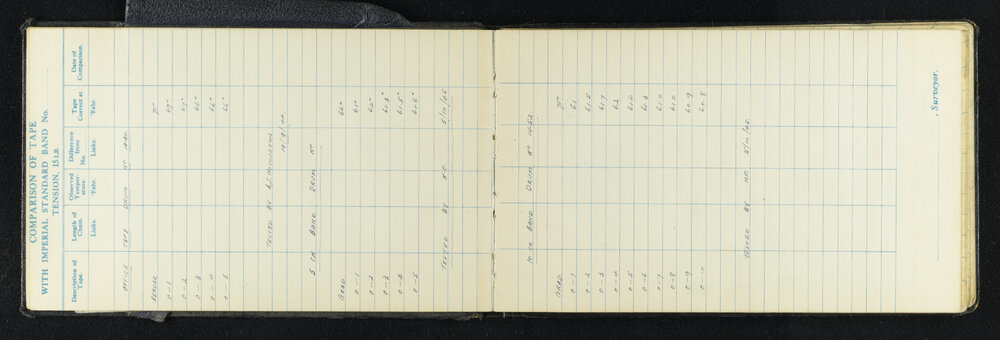 COMPARISON OF TAPE
WITH IMPERIAL STANDARD BAND No.
TENSION, 15 LB.
Description of Tape. Length of Chain Links. Observed Temperature. °Fahr. Difference from No. Links. Tape Correct at °Fahr. Date of Comparison.
OFFICE TAPE DRUM No
71°
0-1 67°
0-2 67°
0-3 66°
0-4 66°
0-5 66°
TESTED BY
5 CH BAND DRUM No
GRAD. 66°
0-1 61°
0-2 62°
0-3 61.3°
0-4 61.5°
0-5 61.6°
TESTED BY 5/10/25
10 CH BAND DRUM No 1452
GRAD. 71°
0-1 61
0-2 61.5
0-3 61.7
0-4 62
0-5 61.6
0-6 61.3
0-7 61.0
0-8 61.0
0-9 60.9
0-10 60.8
TESTED BY 5/10/25
, Surveyor.